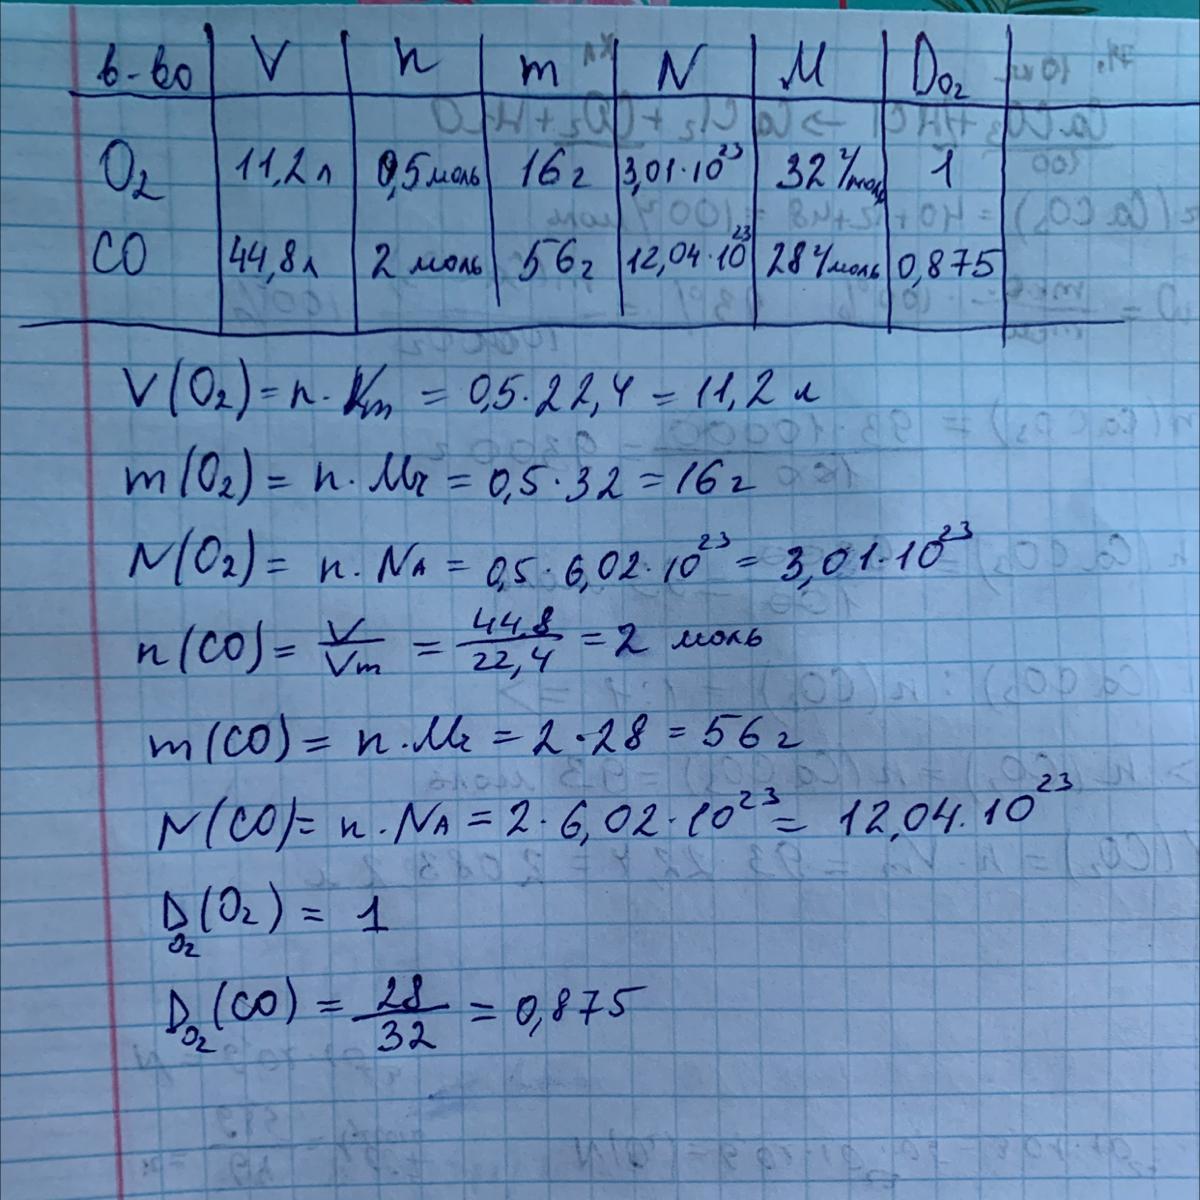 в-во V n m N M D₀₂
O₂ 11,2л 0,5моль 16г 3,01·10²³ 32г/моль 1
CO 44,8л 2 моль 56г 12,04·10²³ 28г/моль 0,875
V(O₂)=n·Vm = 0,5·22,4 = 11,2 л
m(O₂) = n·Mr = 0,5·32 = 16 г
N(O₂) = n·NA = 0,5·6,02·10²³ = 3,01·10²³
n(CO) = V/Vm = 44,8/22,4 = 2 моль
m(CO) = n·Mr = 2·28 = 56 г
N(CO) = n·NA = 2·6,02·10²³ = 12,04·10²³
D_O₂(O₂) = 1
D_O₂(CO) = 28/32 = 0,875